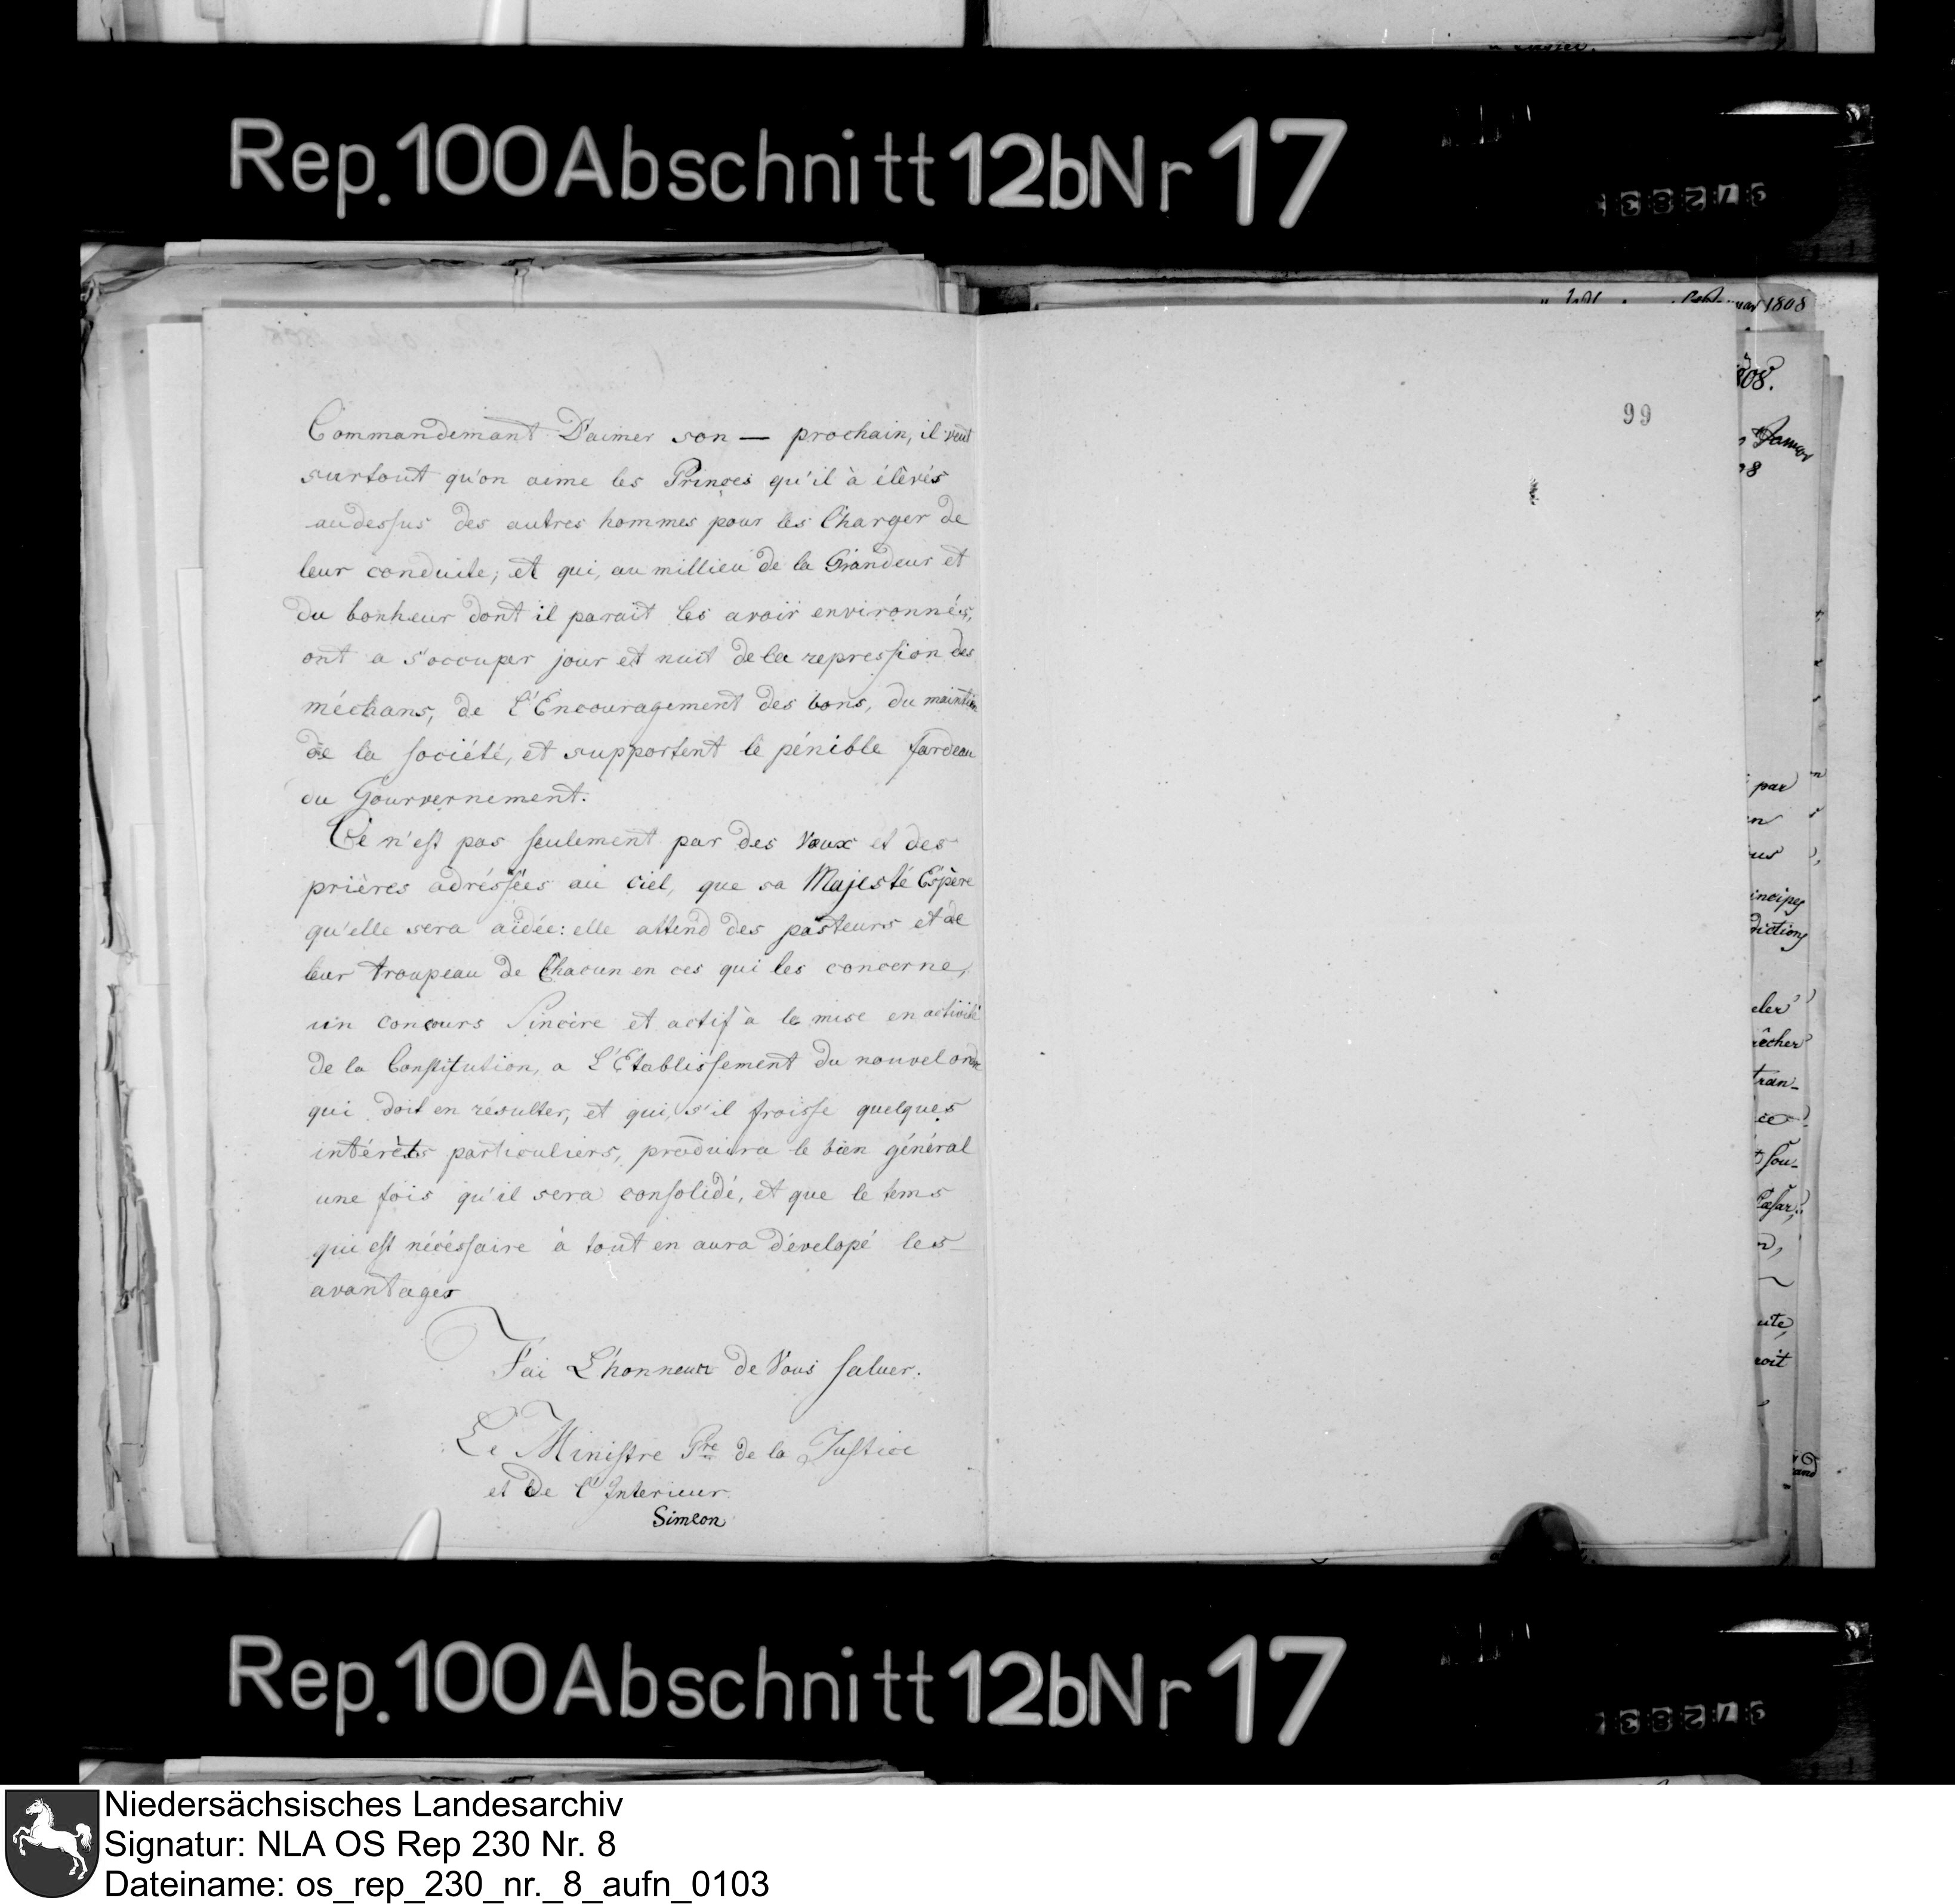 Rep. 100 Abschnitt 12b Nr 17
1808
99
Commandemant D'aimer son — prochain, il veut
surtout qu'on aime les Princes qu'il à élêvés
audessus des autres hommes pour les Charger de
leur conduite; et qui, au millieu de la Grandeur et
du bonheur dont il parait les avoir environnés,
ont a s'occuper jour et nuit de la repression des
méchans, de l'Encouragement des bons, du maintien
de la société, et supportent le pénible fardeau
du Gourvernement.
Ce n'est pas seulement par des Vœux et des
prières adréssées au ciel, que sa Majesté Espère
qu'elle sera aidée: elle attend des pasteurs et de
leur troupeau de Chacun en ces qui les concerne,
un concours Sincère et actif à le mise en activité
de la Constitution, a L'Etablissement du nouvel ordre
qui doit en résulter, et qui, s'il froisse quelques
intérèts particuliers, produira le bien général
une fois qu'il sera consolidé, et que le tems
qui est nécéssaire à tout en aura dévelopé les
avantages
J'ai L'honneur de Vous saluer.
Le Ministre Pre de la Justice
et De l'Interieur
Simeon
par
Rep. 100 Abschnitt 12b Nr 17
Niedersächsisches Landesarchiv
Signatur: NLA OS Rep 230 Nr. 8
Dateiname: os_rep_230_nr._8_aufn_0103